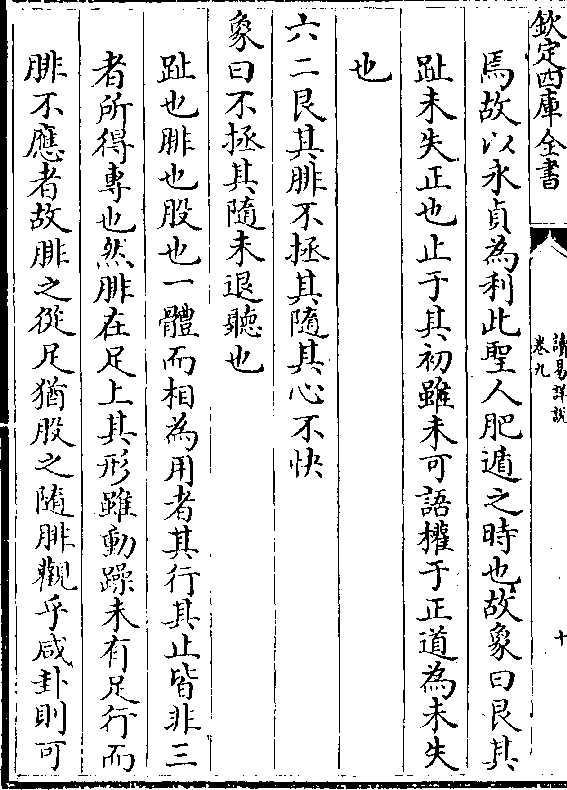 欽定四庫全書
讀易詳說
卷九
十
焉故以永貞為利此聖人肥遁之時也故象曰艮其
趾未失正也止于其初雖未可語權于正道為未失
也
六二艮其腓不拯其隨其心不快
象曰不拯其隨未退聽也
趾也腓也股也一體而相為用者其行其止皆非三
者所得專也然腓在足上其形雖動躁未有足行而
腓不應者故腓之從足猶股之隨腓觀乎咸卦則可